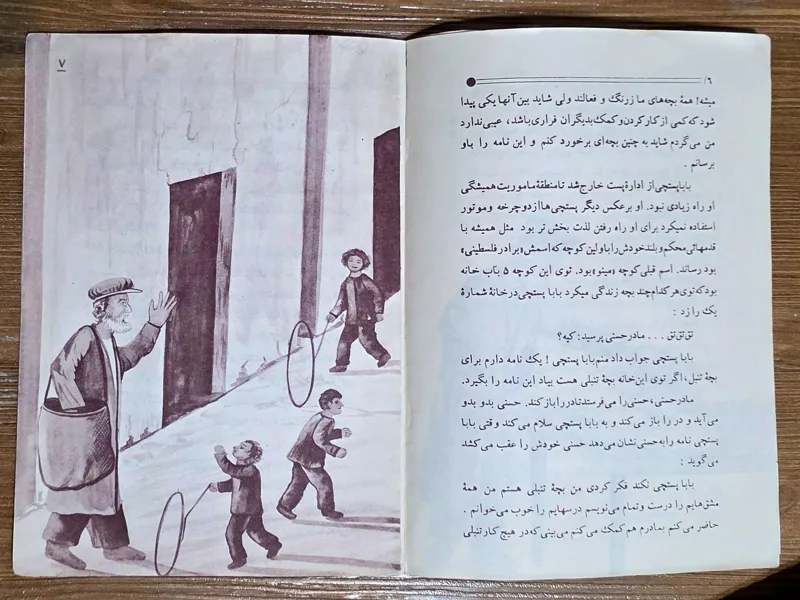 ۶/
میشه! همهٔ بچه‌های ما زرنگ و فعالند ولی شاید بین آنها یکی پیدا
شود که کمی از کار کردن و کمک بدیگران فراری باشد، عیبی ندارد
من می‌گردم شاید به چنین بچه‌ای برخورد کنم و این نامه را باو
برسانم .
بابا پستچی از ادارهٔ پست خارج شد تا منطقهٔ ماموریت همیشگی
او راه زیادی نبود. او برعکس دیگر پستچی‌ها از دوچرخه و موتور
استفاده نمیکرد برای او راه رفتن لذت بخش تر بود مثل همیشه با
قدمهائی محکم و بلند خودش را با اولین کوچه که اسمش «برادر فلسطینی»
بود رساند. اسم قبلی کوچه «مینو» بود. توی این کوچه ۵ باب خانه
بود که توی هر کدام چند بچه زندگی میکرد بابا پستچی در خانهٔ شمارهٔ
یک را زد :
تق تق تق . . . مادر حسنی پرسید: کیه؟
بابا پستچی جواب داد منم بابا پستچی ! یک نامه دارم برای
بچهٔ تنبل، اگر توی این خانه بچهٔ تنبلی هست بیاد این نامه را بگیرد.
مادر حسنی، حسنی را می‌فرستد تا در را باز کند. حسنی بدو بدو
می‌آید و در را باز می‌کند و به بابا پستچی سلام می‌کند وقتی بابا
پستچی نامه را به حسنی نشان می‌دهد حسنی خودش را عقب می‌کشد
می‌گوید :
بابا پستچی نکند فکر کردی من بچهٔ تنبلی هستم من همهٔ
مشق‌هایم را درست و تمام می‌نویسم درسهایم را خوب می‌خوانم .
حاضر می‌کنم بمادرم هم کمک می‌کنم می‌بینی که در هیچ کار تنبلی
۷